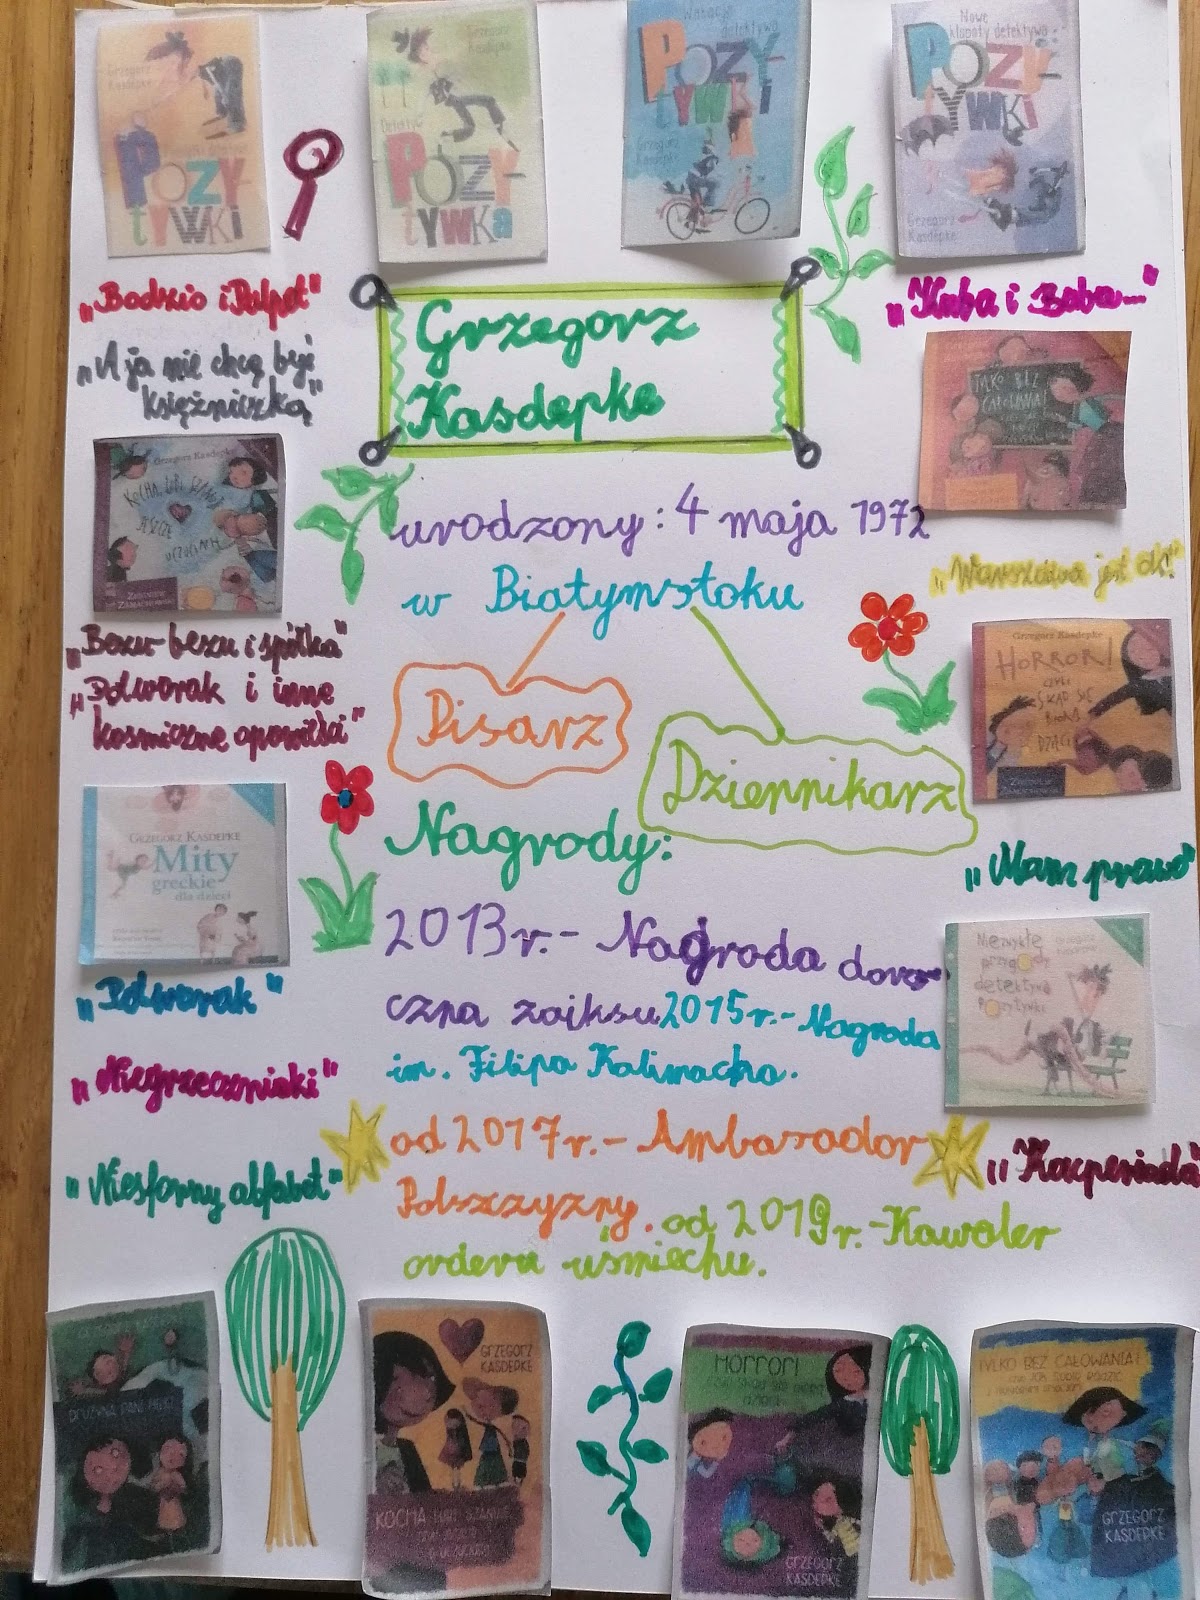 Grzegorz Kasdepke
POZY-
tywki
Grzegorz Kasdepke
Detektyw
POZY-
tywka
Wakacje detektywa
POZY-
tywki
Grzegorz Kasdepke
Nowe kłopoty detektywa
POZY-
tywki
Grzegorz Kasdepke
„Bodzio i Pulpet"
„A ja nie chcę być
księżniczką"
Grzegorz Kasdepke
KOCHA, LUBI, SZANUJE
JESZCZE O UCZUCIACH
ZBIGNIEW ZAMACHOWSKI
„Bezu-bezu i spółka"
„Potworak i inne
kosmiczne opowiłki"
GRZEGORZ KASDEPKE
Mity
greckie
dla dzieci
„Potworak"
„Niegrzeczniaki"
„Niesforny alfabet"
Grzegorz
Kasdepke
urodzony: 4 maja 1972
w Białymstoku
Pisarz
Dziennikarz
Nagrody:
2013r.- Nagroda doro
czna zaiksu 2015r.- Nagroda
im. Filipa Kalimacha.
od 2017r.- Ambasador
Polszzyzny. od 2019r.-Kawaler
orderu uśmiechu.
„Kuba i Buba..."
TYLKO BEZ
CAŁOWANIA!
„Warszawa jest ok!"
Grzegorz Kasdepke
HORROR!
CZYLI
SKĄD SIĘ
BIORĄ
DZIECI
„Mam prawo"
Niezwykłe
przygody
detektywa
Pozytywki
„Kacperiada"
DRUŻYNA PANI MIŁKI
GRZEGORZ
KASDEPKE
KOCHA, LUBI, SZANUJE
HORROR!
GRZEGORZ
KASDEPKE
TYLKO BEZ CAŁOWANIA!
GRZEGORZ
KASDEPKE